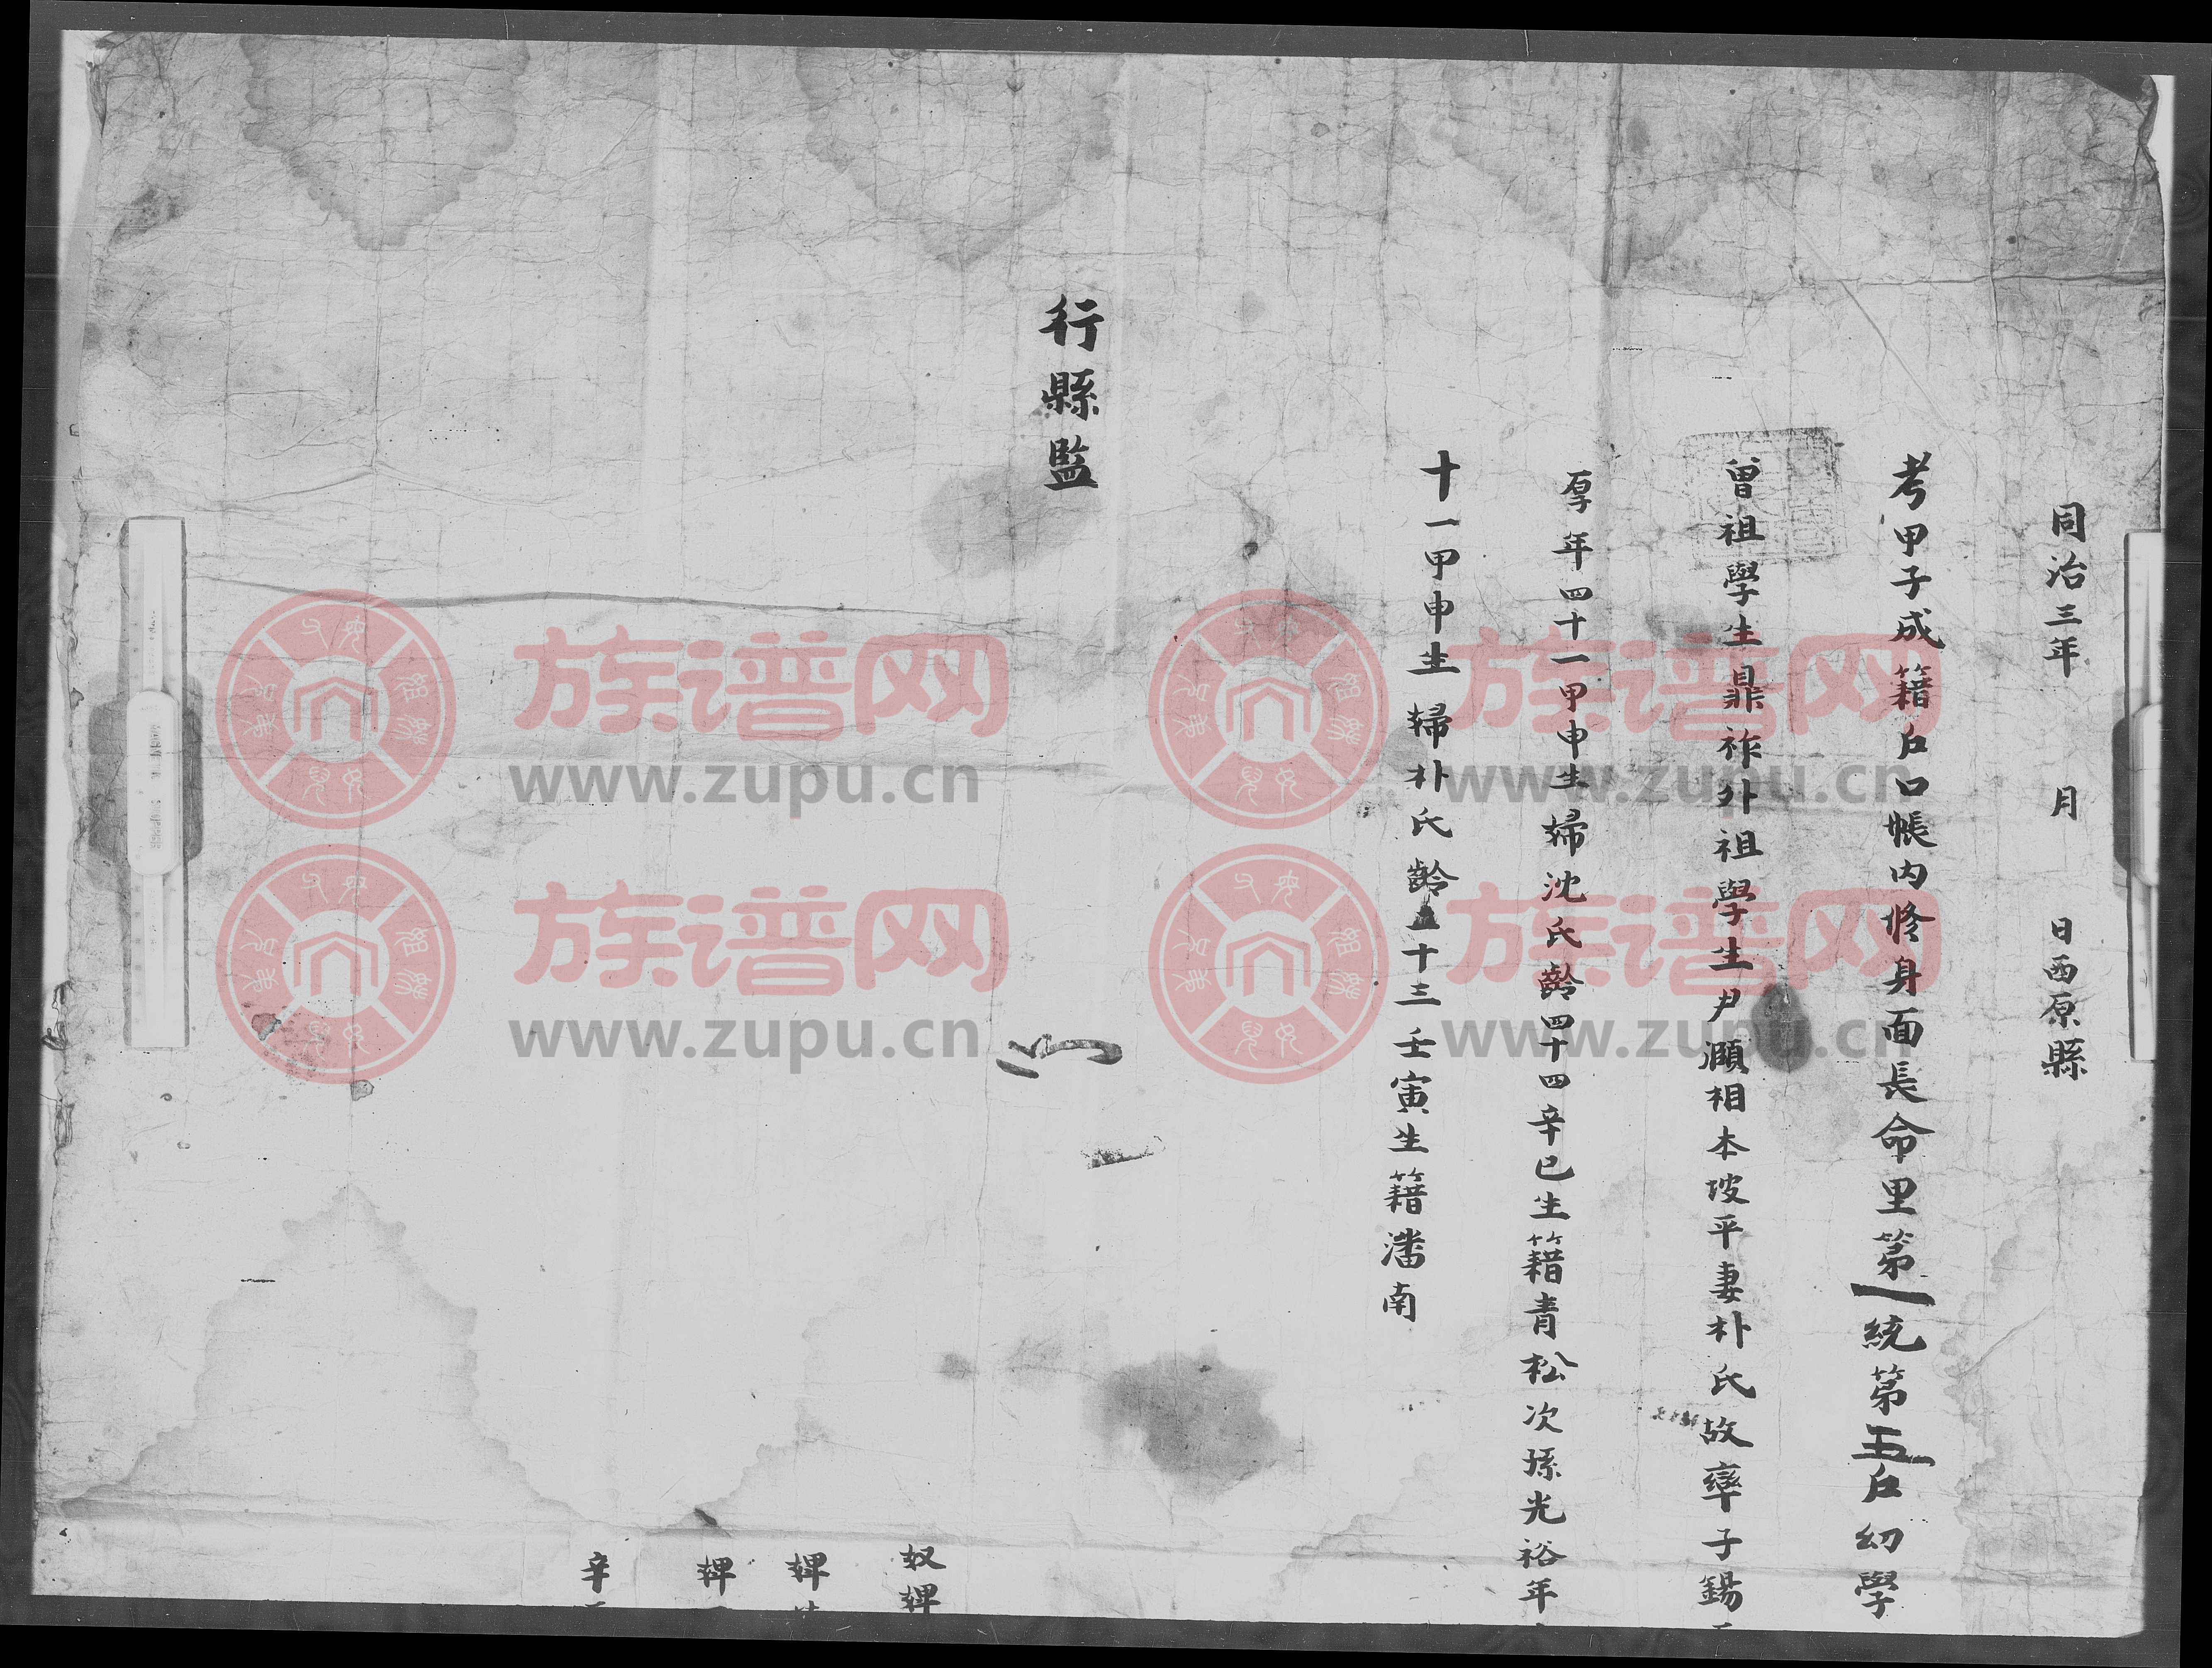 同治三年 月 日西原縣
考甲子成籍戶口帳內修身面長命里第一統第五戶幼學
曾祖學生鼎祚外祖學生尹灝相本坡平妻朴氏故率子錫
厚年四十一甲申生婦沈氏齡四十四辛巳生籍青松次孫光裕年
十一甲申生婦朴氏齡十三壬寅生籍潘南
行縣監
奴婢
婢
婢
辛
族谱网
www.zupu.cn
族谱网
www.zupu.cn
族谱网
www.zupu.cn
族谱网
www.zupu.cn